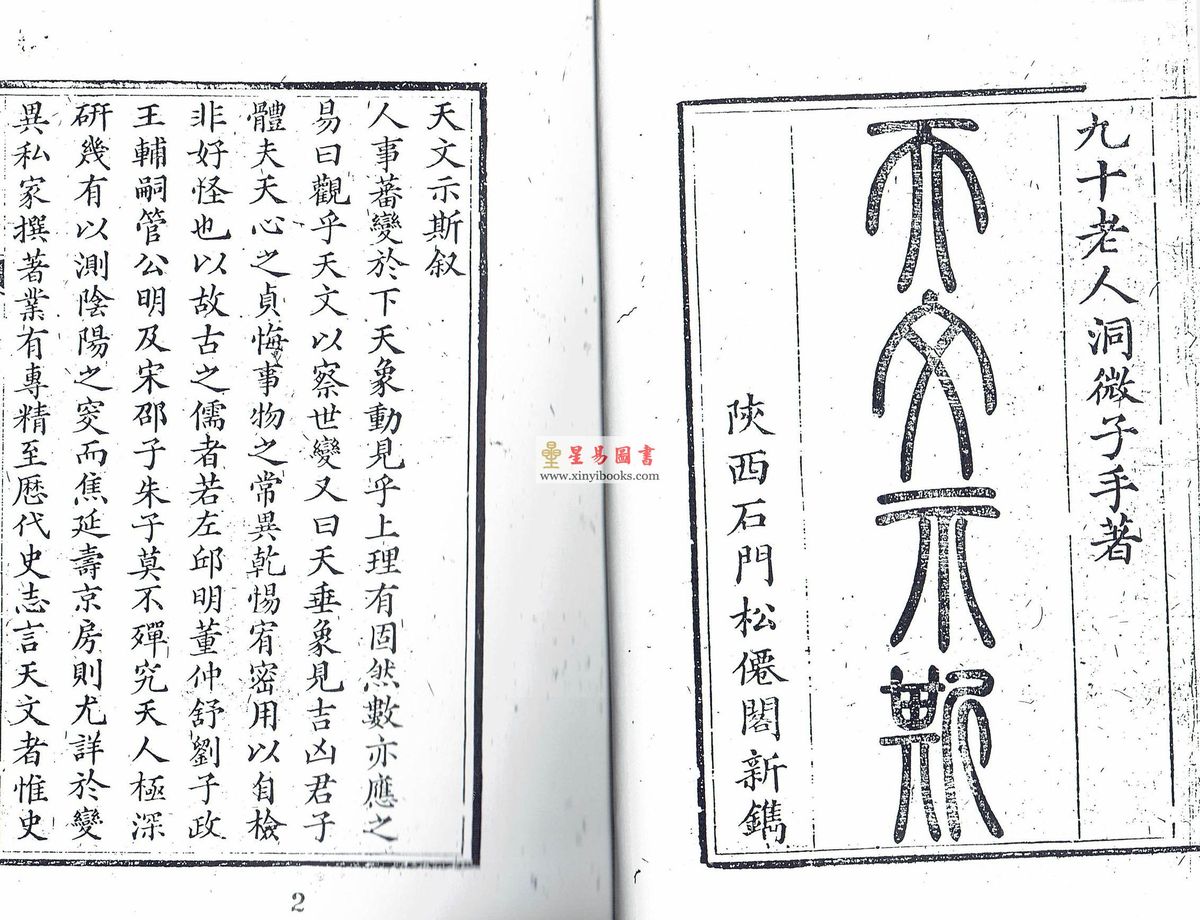 九十老人洞微子手著
天文示斯
陝西石門松僊閣新鐫
天文示斯叙
人事蕃變於下天象動見乎上理有固然數亦應之
易曰觀乎天文以察世變又曰天垂象見吉凶君子
體夫天心之貞悔事物之常異乾惕宥密用以自檢
非好怪也以故古之儒者若左邱明董仲舒劉子政
王輔嗣管公明及宋邵子朱子莫不殫究天人極深
研幾有以測陰陽之突而焦延壽京房則尤詳於變
異私家撰著業有專精至歷代史志言天文者惟史
2
星易圖書
www.xinyibooks.com